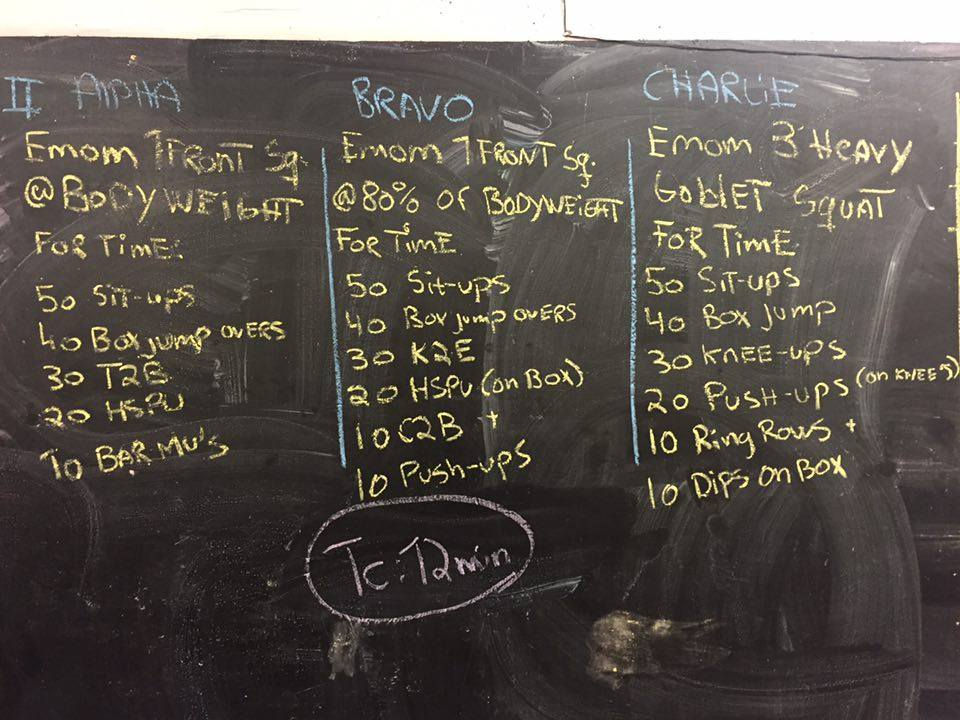 II ALPHA
Emom 1 FRONT Sq.
@BODYWEIGHT
FOR TIME:
50 SIT-UPS
40 Box jump OVERS
30 T2B
20 HSPU
10 BAR MU's
BRAVO
Emom 1 FRONT Sq.
@80% OF BODYWEIGHT
FOR TIME
50 Sit-ups
40 Box jump OVERS
30 K2E
20 HSPU (on Box)
10 C2B +
10 Push-ups
CHARLIE
Emom 3 HEAVY
GOBLET SQUAT
FOR TIME
50 SIT-UPS
40 Box Jump
30 KNEE-UPS
20 PUSH-UPS (ON KNEES)
10 Ring Rows +
10 Dips on Box
TC: 12min